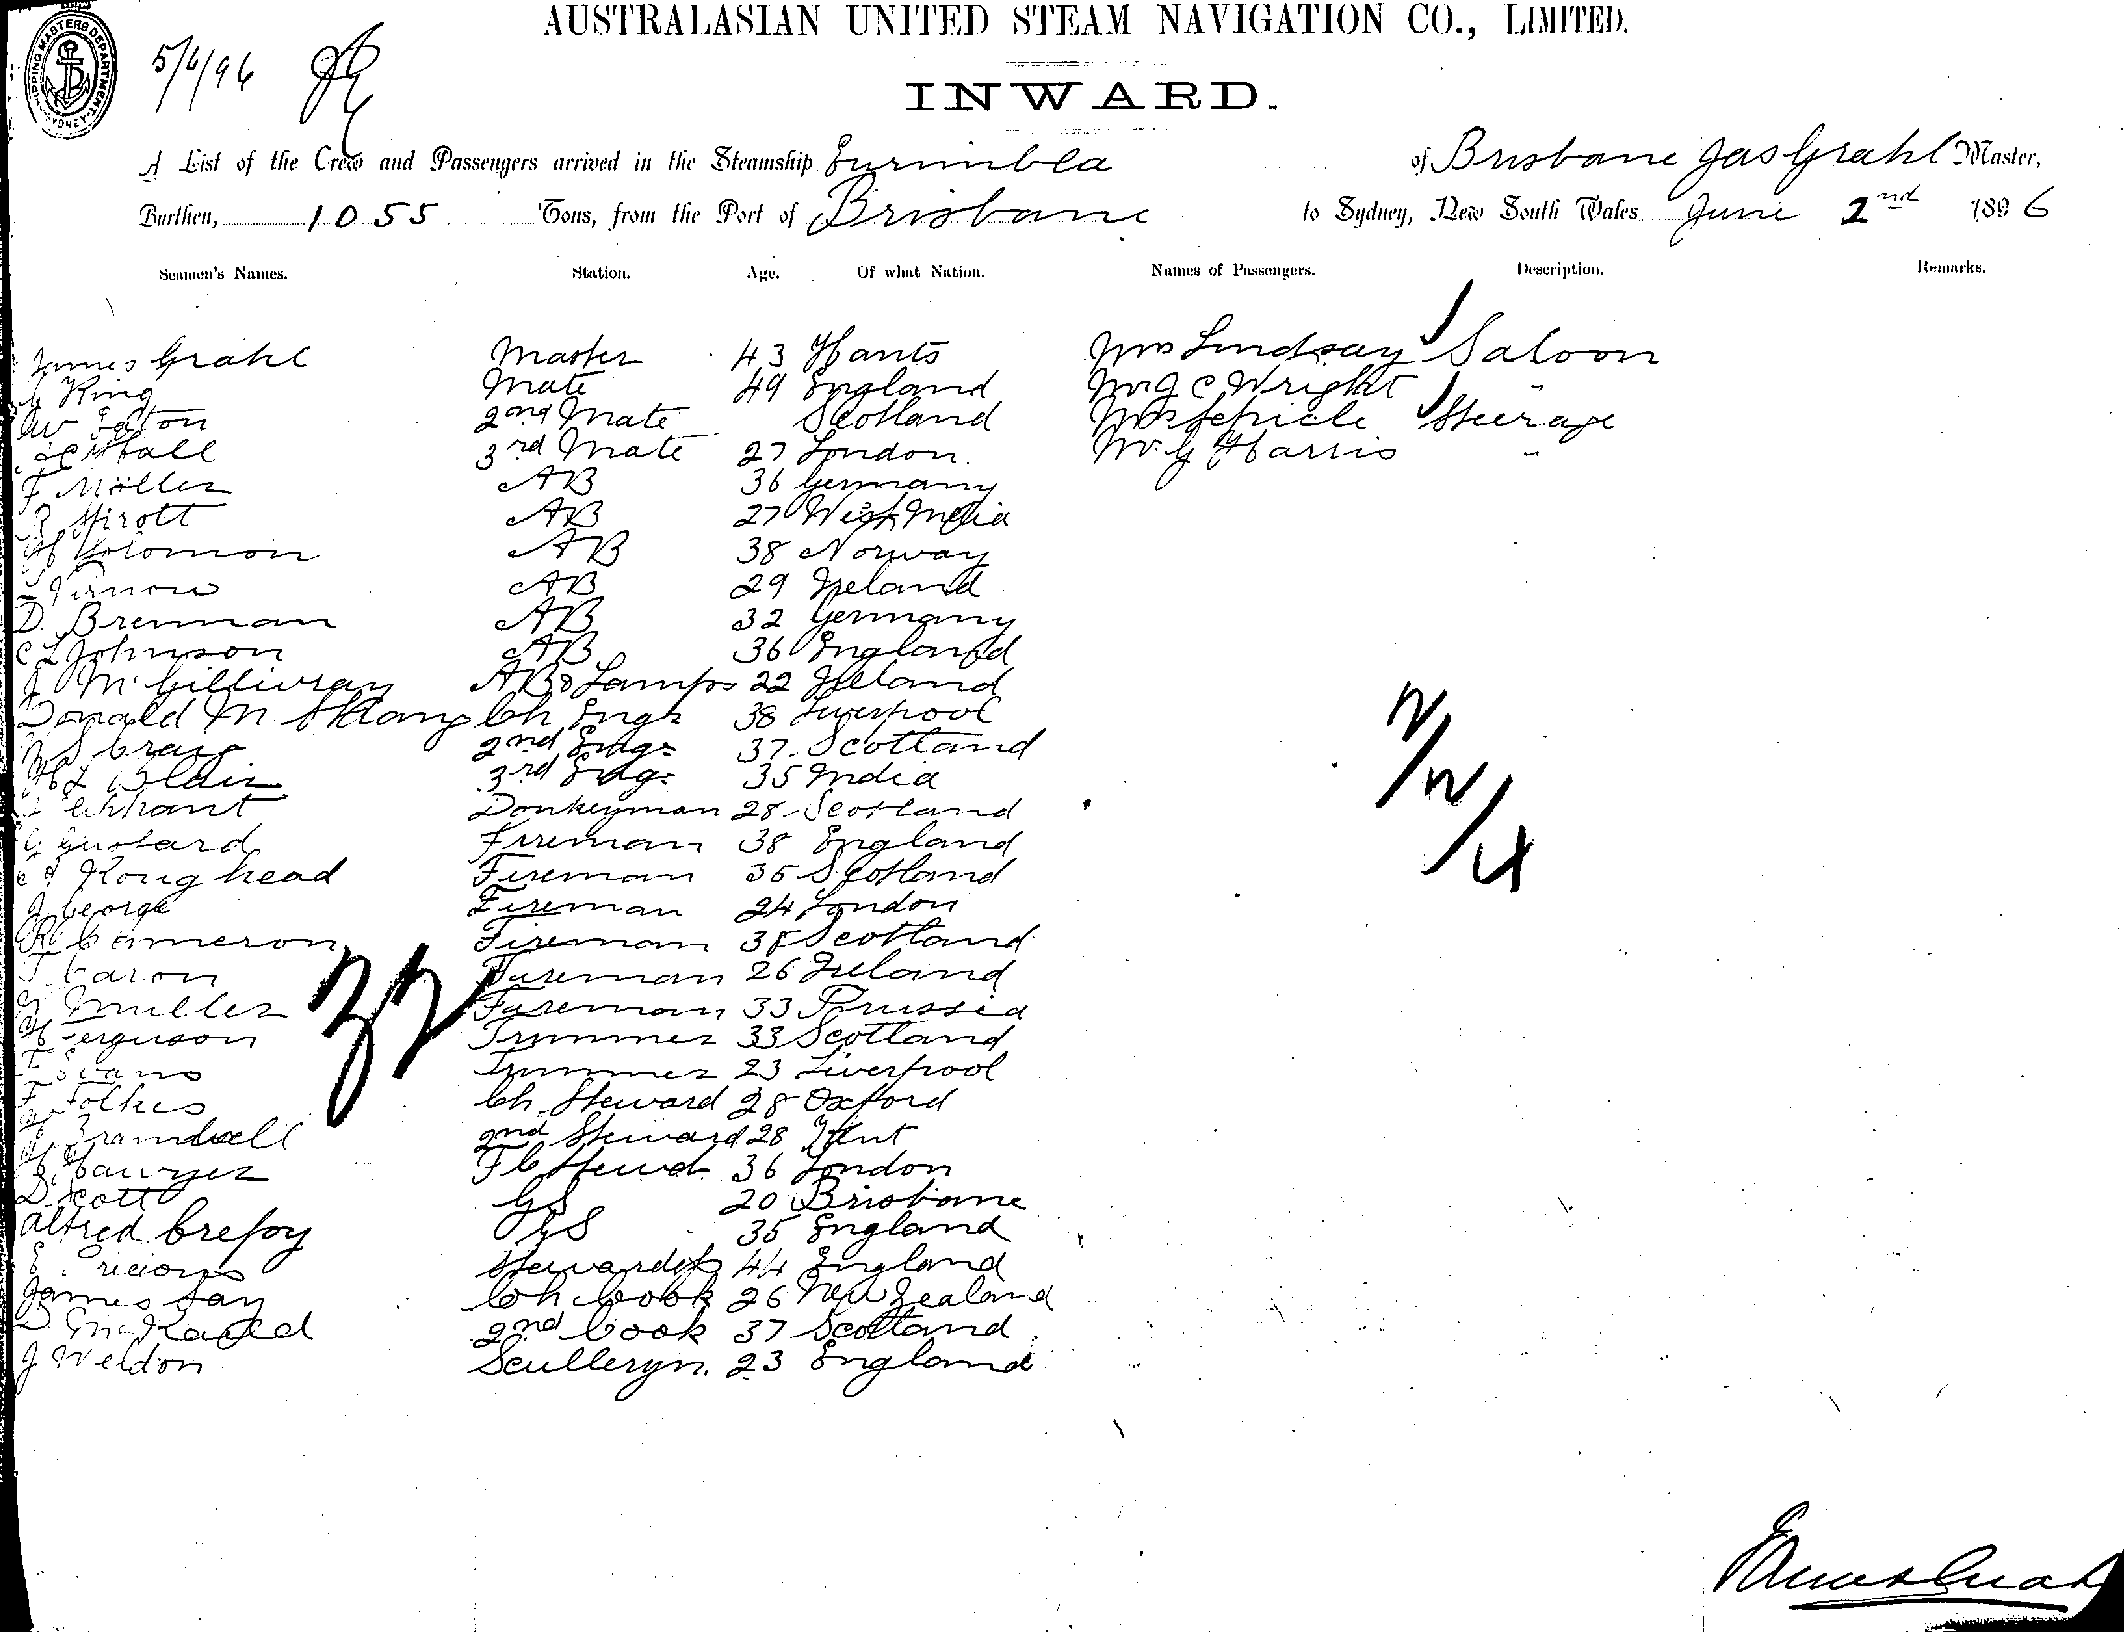 AUSTRALASIAN UNITED STEAM NAVIGATION CO., LIMITED.
SHIPPING MASTERS DEPARTMENT SYDNEY
5/6/96
INWARD.
A List of the Crew and Passengers arrived in the Steamship Eurimbla of Brisbane Jas Grahl Master,
Burthen, 1055 Tons, from the Port of Brisbane to Sydney, New South Wales June 2nd 1896
Seamen's Names. Station. Age. Of what Nation. Names of Passengers. Description. Remarks.
James Grahl Master 43 Hants Mrs Lindsay Saloon
King Mate 49 England Mr J C Wright "
2nd Mate Scotland Mrs Steerage
Hall 3rd Mate 27 London. Mr G Harris "
F Möller AB 36 Germany
Sprott AB 27 West India
Solomon AB 38 Norway
Vernon AB 29 Ireland
D. Brennan AB 32 Germany
C L Johnson AB 36 England
J McGillivray AB & Lamps 22 Ireland
Donald M Ch Engr 38 Liverpool
Craig 2nd Engr 37 Scotland
Blair 3rd Engr 35 India
Donkeyman 28 Scotland
G Gustard Fireman 38 England
Roughead Fireman 35 Scotland
J George Fireman 24 London
R Cameron Fireman 38 Scotland
T Caron Fireman 26 Ireland
Muller Fireman 33 Prussia
H Ferguson Trimmer 33 Scotland
F Evans Trimmer 23 Liverpool
F Folkes Ch. Steward 28 Oxford
Bramdwell 2nd Steward 28 Kent
Sawyer F C Stewd 36 London
D Scott GS 20 Brisbane
Alfred Crefoy GS 35 England
E. Stewardess 44 England
James Jay Ch Cook 26 New Zealand
D. 2nd Cook 37 Scotland
J Weldon Sculleryn. 23 England
32